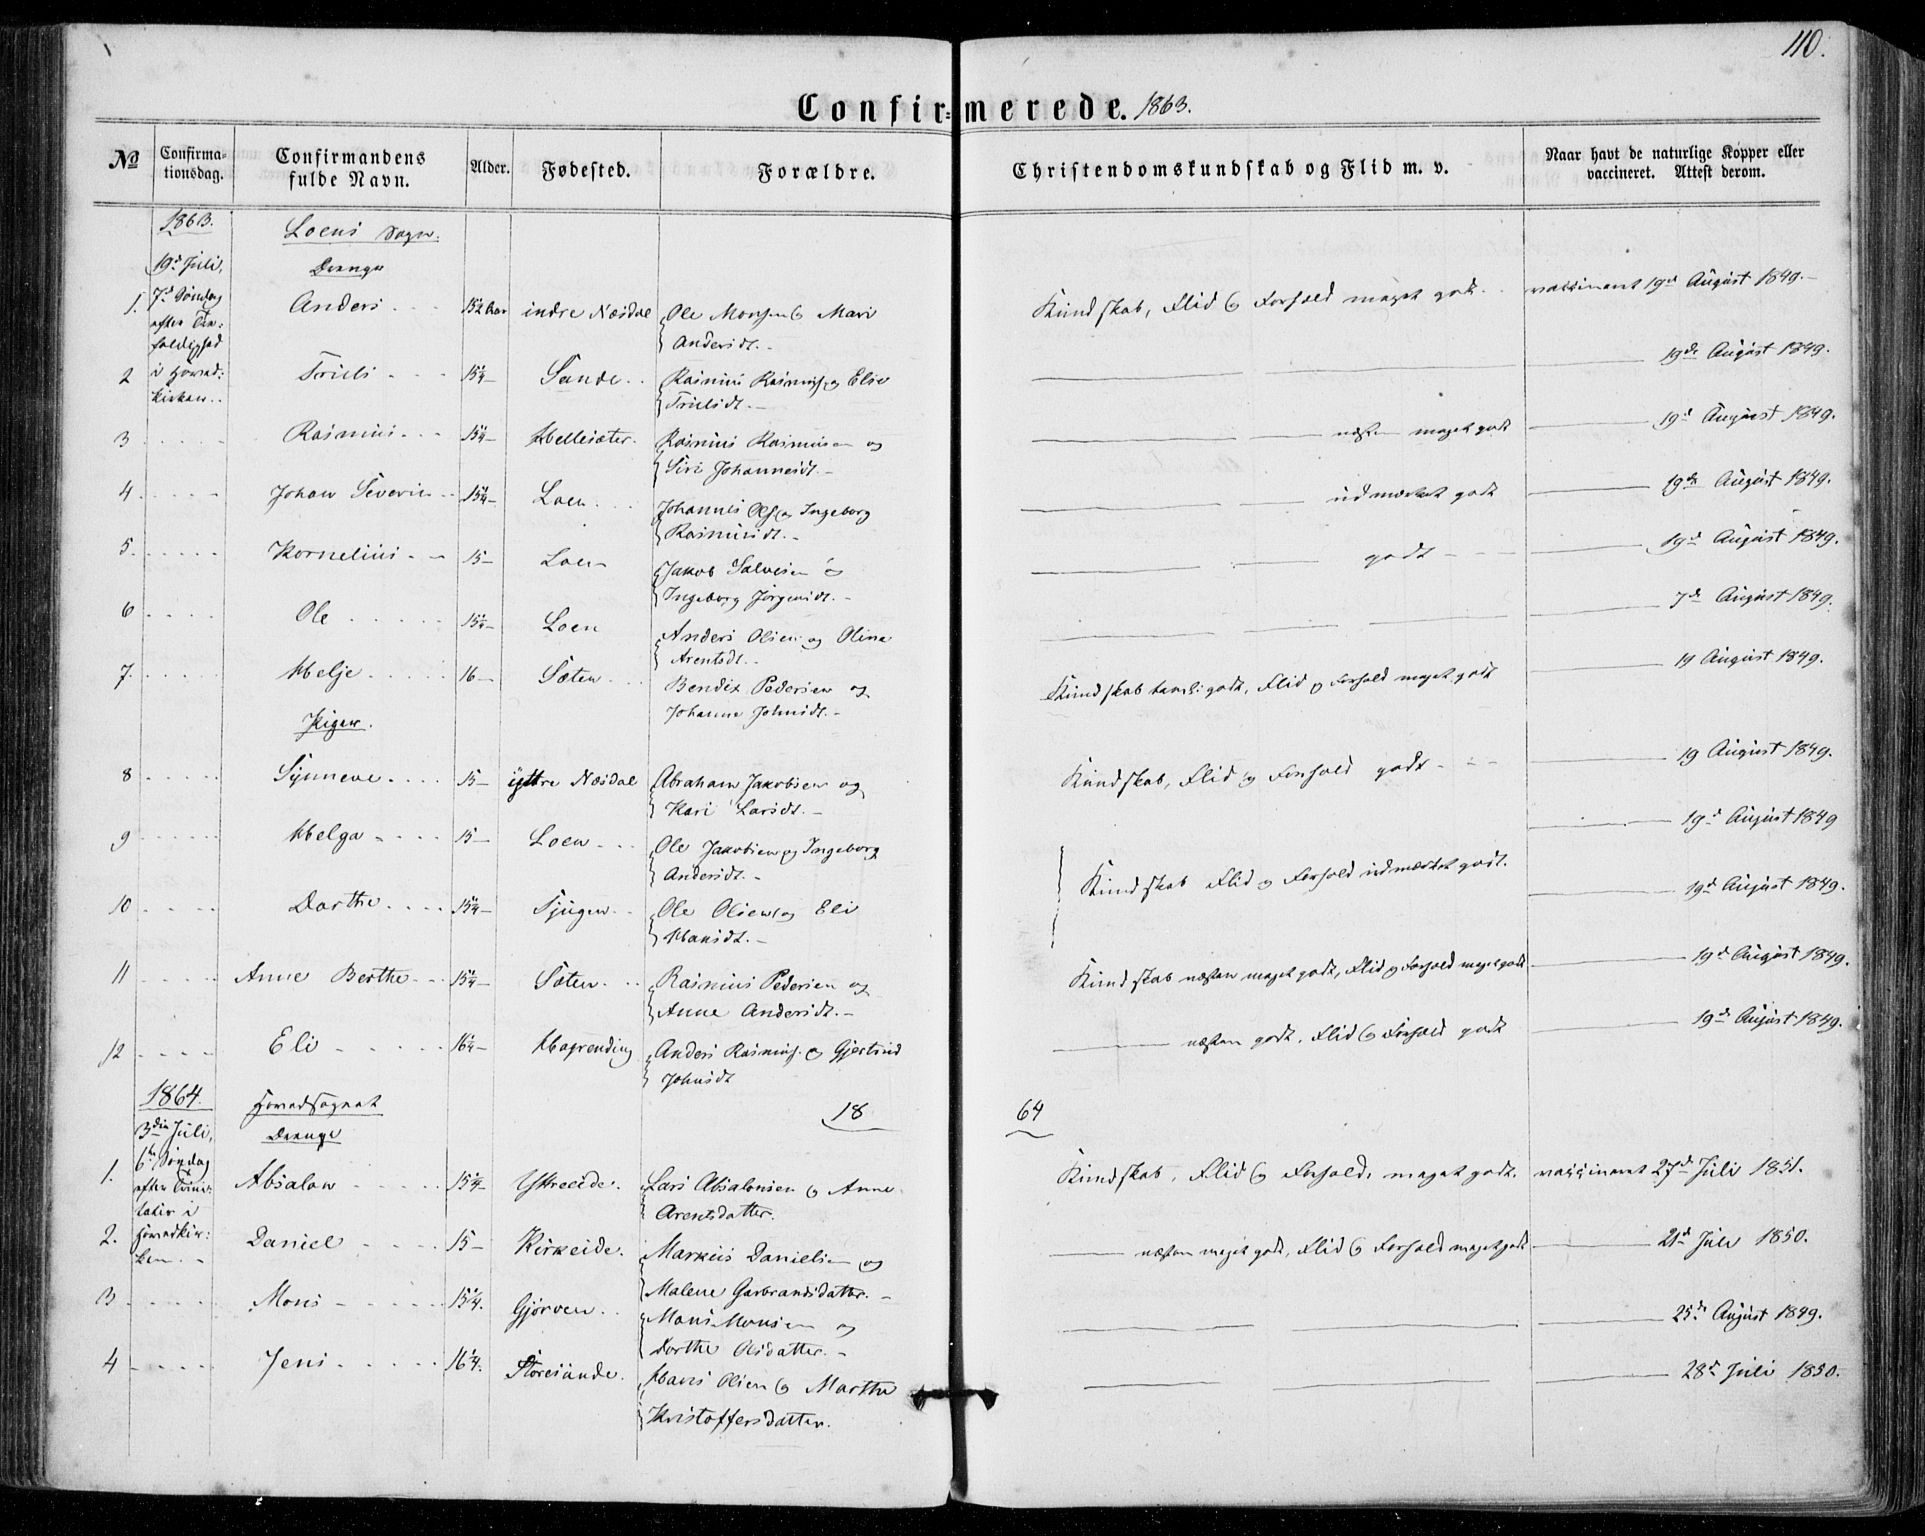 110.
Confir=merede. 1863.
No
Confirma=
tionsdag.
Confirmandens
fulde Navn.
Alder.
Fødested.
Forældre.
Christendomskundskab og Flid m. v.
Naar havt de naturlige Kopper eller
vaccineret. Attest derom.
1863. Loens Sogn.
19d Juli, Drenge
7d Søndag
efter Tre=
foldighed
i Hoved=
kirken..
1. Anders indre Næsdal Ole Monsen & Mari
Andersdt. Kundskab, Flid & Forhold meget godt. vaccineret 19d August 1849.
2 Truls 15¼ Sande Rasmus Rasmuss. og Else
Trulsdt. 19de August 1849.
3 Rasmus 15¼ Hellesæter Rasmus Rasmusen og
Siri Johannesdt. næsten meget godt 19d August 1849.
4. Johan Severin 15¼ Loen Johannes Ols. og Ingeborg
Rasmusdt. udmærket godt 19de August 1849.
5. Kornelius 15 Loen Jakob Salvesen og
Ingeborg Jørgensdt. godt 19d August 1849.
6 Ole 15¼ Loen Anders Olsen og Oline
Arentsdt. 7de August 1849.
7. Helje 16 Sæten Bendix Pedersen og
Johanne Johnsdt. Kundskab temli: godt, Flid og Forhold meget godt 19 August 1849.
Piger.
8 Synneve 15 ÿttre Næsdal Abraham Jakobsen og
Kari Larsdt. Kundskab, Flid og Forhold godt 19 August 1849.
9 Helga 15 Loen Ole Jakobsen og Ingeborg
Andersdt. 19d August 1849
Kundskab Flid og Forhold udmærket godt.
10 Dorthe 15¼ Tjugen Ole Olsen og Eli
Hansdt. 19d August 1849.
11 Anne Berthe 15¼ Sæten Rasmus Pedersen og
Anne Andersdt. Kundskab næsten meget godt, Flid og Forhold meget godt 19d August 1849.
12 Eli 16¼ Haarending Anders Rasmuss. og Gjertrud
Johnsdt næsten godt, Flid & Forhold godt 19de August 1849.
1864. Hovedsognet 18 64
3die Juli, Drenge
6te Søndag
efter Trini=
tatis i
Hovedkir=
ken.
1. Absalon 15¼ Ytreeide Lars Absalonsen & Anne
Arentsdatter. Kundskab, Flid & Forhold meget godt. vaccineret 27d Juli 1851.
2. Daniel 15 Kirkeide. Markus Danielsen og
Malene Garbrandsdatter. næsten meget godt, Flid & Forhold meget godt 21d Juli 1850.
3 Mons 15¼. Gjørven Mons Monsen og
Dorthe Olsdatter. 25de August 1849.
4 Jens 16¼. Storesunde. Hans Olsen & Marthe
Kristoffersdatter. 28d Juli 1850.